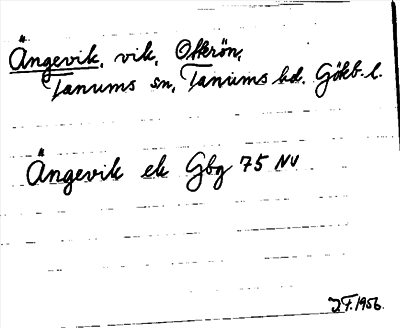 Ängevik, vik, Otterön,
Tanums sn, Tanums hd. Gökb. l.
Ängevik ek Gbg 75 NV
J.F. 1956.